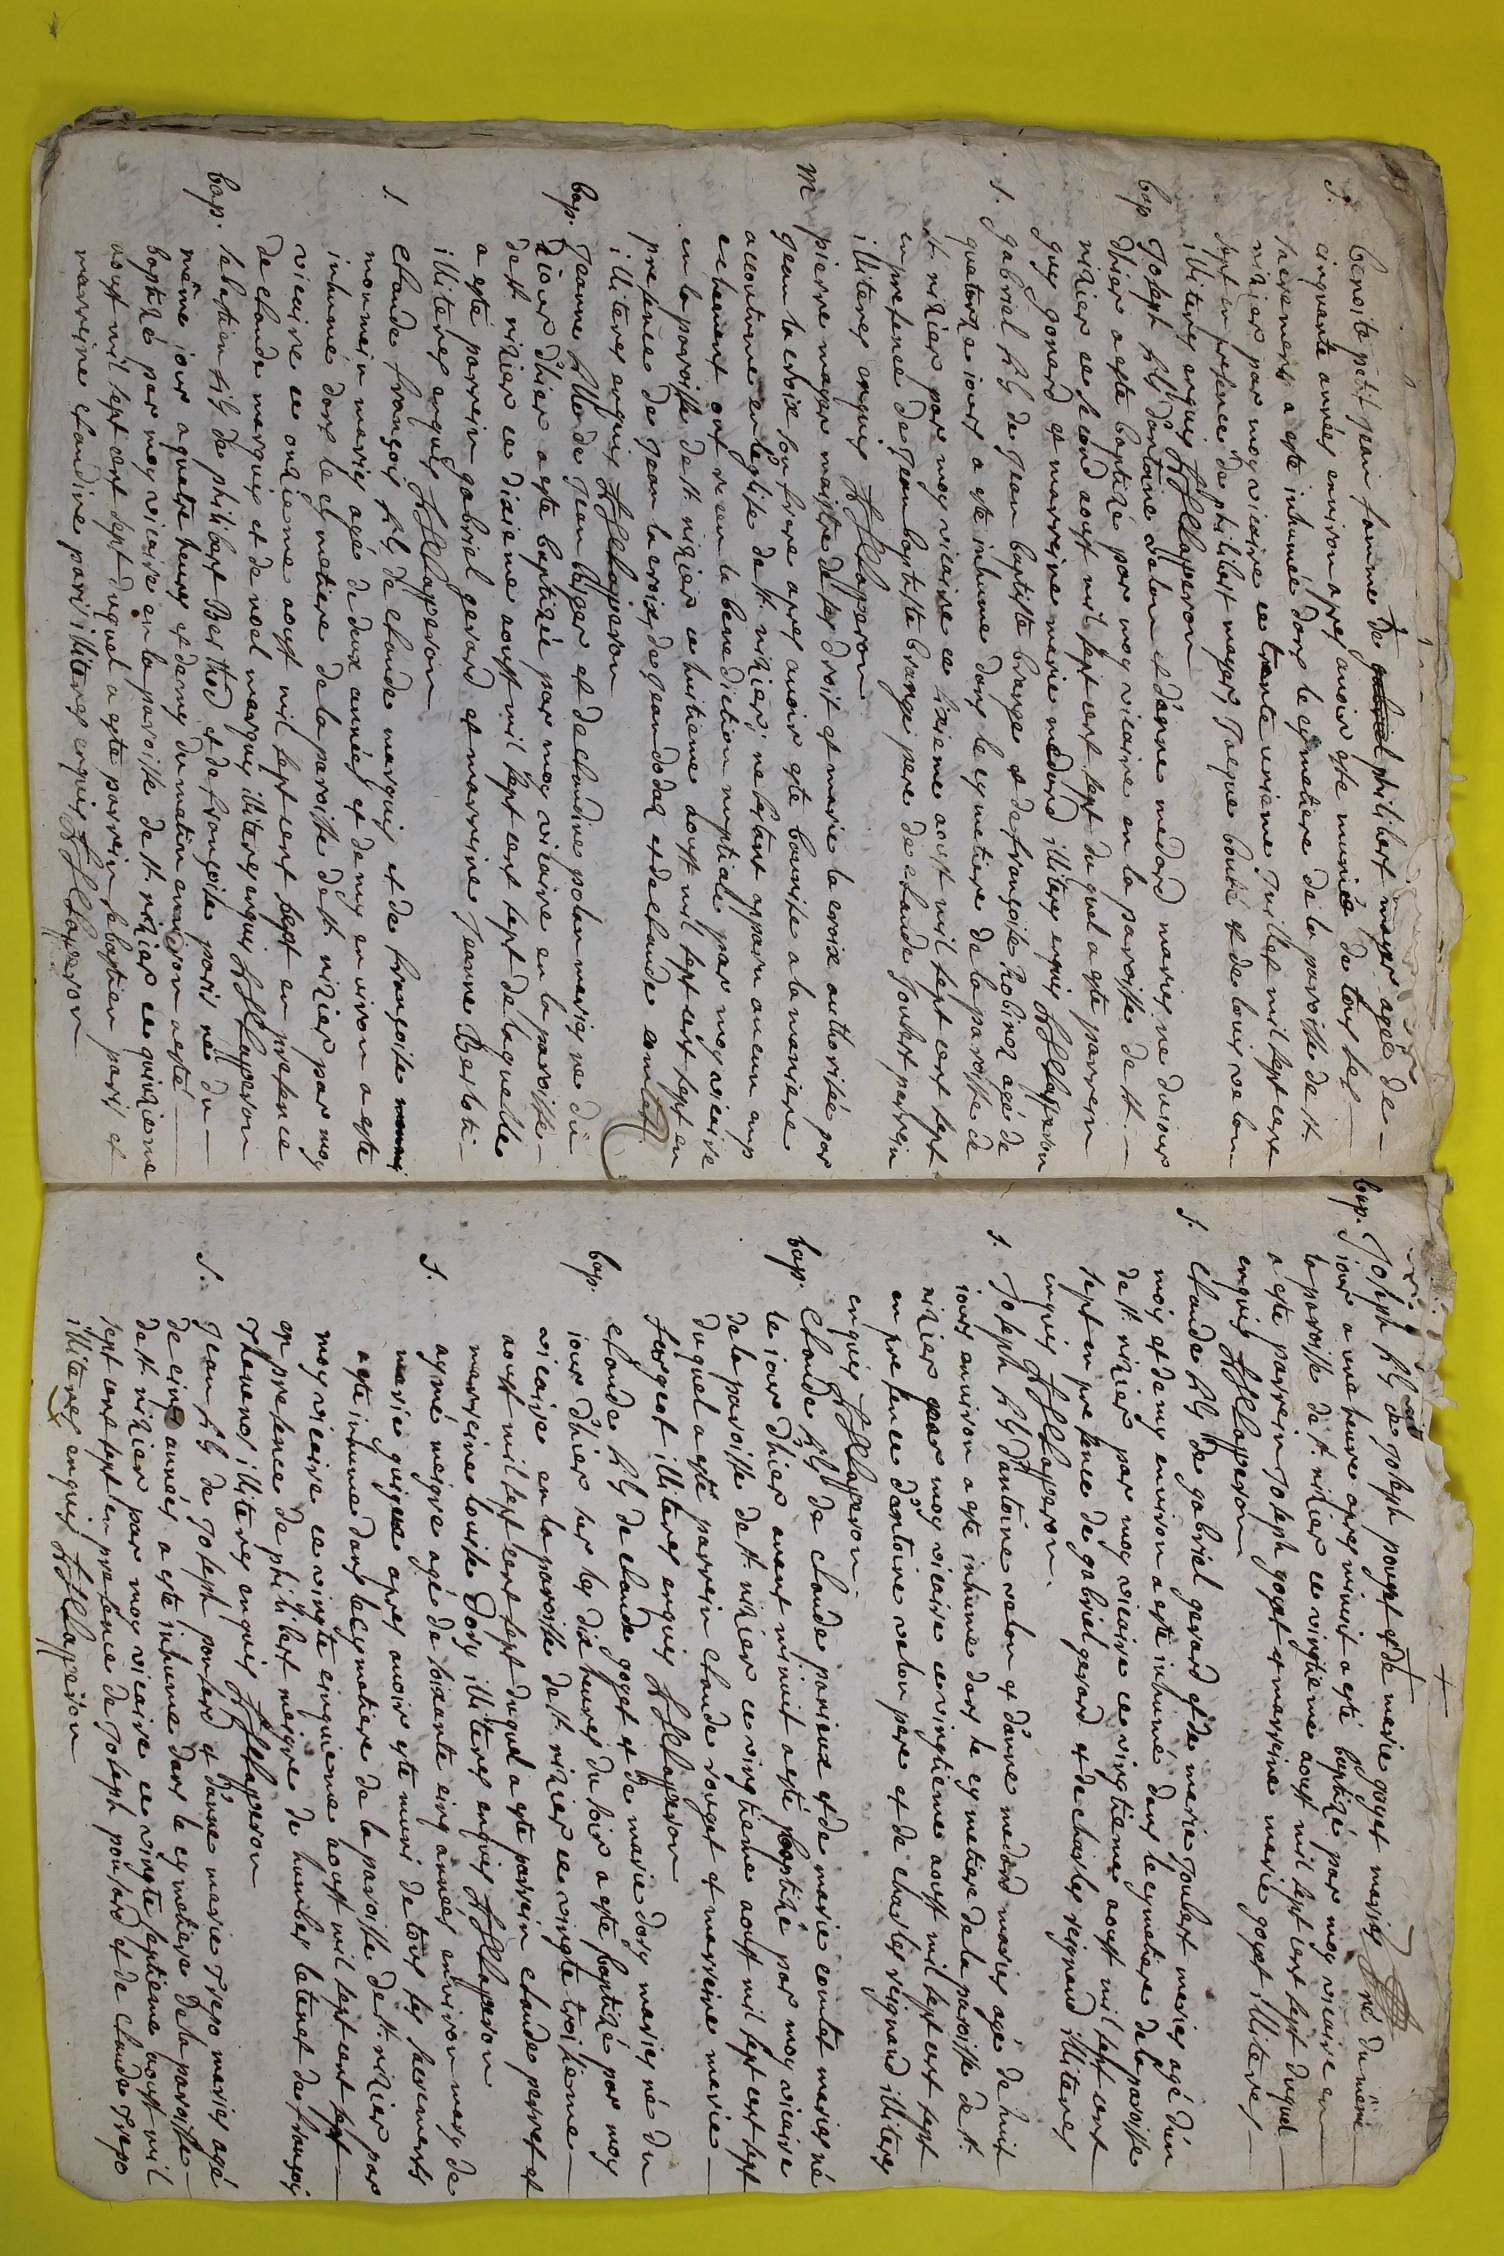 S. benoite petit jean femme de philibert mayer agée de
cinquante années environ apres avoir esté munie de tous ses
sacrements a esté inhumée dans le cymetiere de la paroisse de st
nizier par moy vicaire ce trente unieme juillet mil sept cent
sept en presence de philibert mayer, Jacque bouté et de louis
illiteres enquis Chapperon
bap Joseph fils d'antoine velon et d'anne medard mariés né du jour
d'hier a esté baptizé par moy vicaire en la paroisse de st
nizier ce second aoust mil sept cent sept duquel a esté parrein
guy gonard et marreine marie medard illiteres enquis Chapperon
S. gabriel fils de Jean baptiste brange et de françoise Robinot agé de
quatorze jours a esté inhumé dans le cymetiere de la paroisse de
st nizier par moy vicaire ce sixieme aoust mil sept cent sept
en presence de Jean baptiste brange pere de claude Joubert parrein
illiteres enquis Chapperon
M pierre mayer maistre de ses droit et marie la croix authorisée par
Jean la croix son frere apres avoir esté la maniere
accoutumé en leglise de st nizier, ne sestant apparu aucun emp
echement ont receu la benediction nuptiale par moy vicaire
en la paroisse de st nizier ce huitieme aoust mil sept cent sept en
presence de Jean la croix, de Jean dodat et de claude comtet
illiteres enquis Chapperon
bap. Jeanne fille de Jean et de claudine mariés né du
jour d'hier a esté baptizée par moy vicaire en la paroisse
de st nizier ce dixieme aoust mil sept cent sept de laquelle
a esté parrein gabriel gerard et marreine Jeanne
illiteres enquis Chapperon
S. claude françois fils de claude marquis et de françoise
mariés agé de deux années et demy environ a esté
inhumé dans le cymetiere de la paroisse de st nizier par moy
vicaire ce onzieme aoust mil sept cent sept en presence
de claude marquis et de noel marquis illiteres enquis Chapperon
bap. sebastien fils de philibert Berthod et de françoise paris né du
même jour a quatre heures et demy du matin environ a esté
baptizé par moy vicaire en la paroisse de st nizier ce quinzieme
aoust mil sept cent sept duquel a esté parrein sebastien paris et
marreine claudine paris illiteres enquis Chapperon
bap. Joseph fils de Joseph pouget et de marie goyet mariés né du même
jour a une heure apres minuit a esté baptizé par moy vicaire en
la paroisse de st nizier ce vingtieme aoust mil sept cent sept duquel
a esté parrein Joseph goyet et marreine marie goyet illiteres
enquis Chapperon
S. claude fils de gabriel gerard et de marie Joubert mariés agé d'un
mois et demy environ a esté inhumé dans le cymetiere de la paroisse
de st nizier par moy vicaire ce vingtieme aoust mil sept cent
sept en presence de gabriel gerard et de charles reignaud illiteres
enquis Chapperon.
S. Joseph fils d'antoine velon et d'anne medard mariés agé de huit
jours environ a esté inhumé dans le cymetiere de la paroisse de st.
nizier par moy vicaire ce vingtieme aoust mil sept cent sept
en presence d'antoine velon pere et de charles reignaud illiteres
enquis Chapperon.
bap. claude fils de claude et de marie comtet mariés né
le jour d'hier avant minuit a esté baptizé par moy vicaire
de la paroisse de st nizier ce vingtieme aoust mil sept cent sept
duquel a esté parrein claude rouget et marreine marie
forgeot illiteres enquis Chapperon
bap. claude fils de claude goyet et de marie dory mariés né du
jour d'hier sur les dix heures du soir a esté baptizé par moy
vicaire en la paroisse de st nizier ce vingte troisieme
aoust mil sept cent sept duquel a esté parrein claude perret et
marreine louise dory illiteres enquis Chapperon
S. aymé meigre agé de soixante cinq années environ mary de
marie apres avoir esté muni de tous ses sacrements
a esté inhumé dans le cymetiere de la paroisse de st. nizier par
moy vicaire ce vingte cinquieme aoust mil sept cent sept
en presence de philibert meigre de humbert latenet de françois
thevenot illiteres enquis Chapperon
S. Jean fils de Joseph ponsard et d'anne marie trepo mariés agé
de cinq années a esté inhumé dans le cymetiere de la paroisse
de st nizier par moy vicaire ce vingte septieme aoust mil
sept cent sept en presence de Joseph ponsard et de claude trepo
illiteres enquis Chapperon